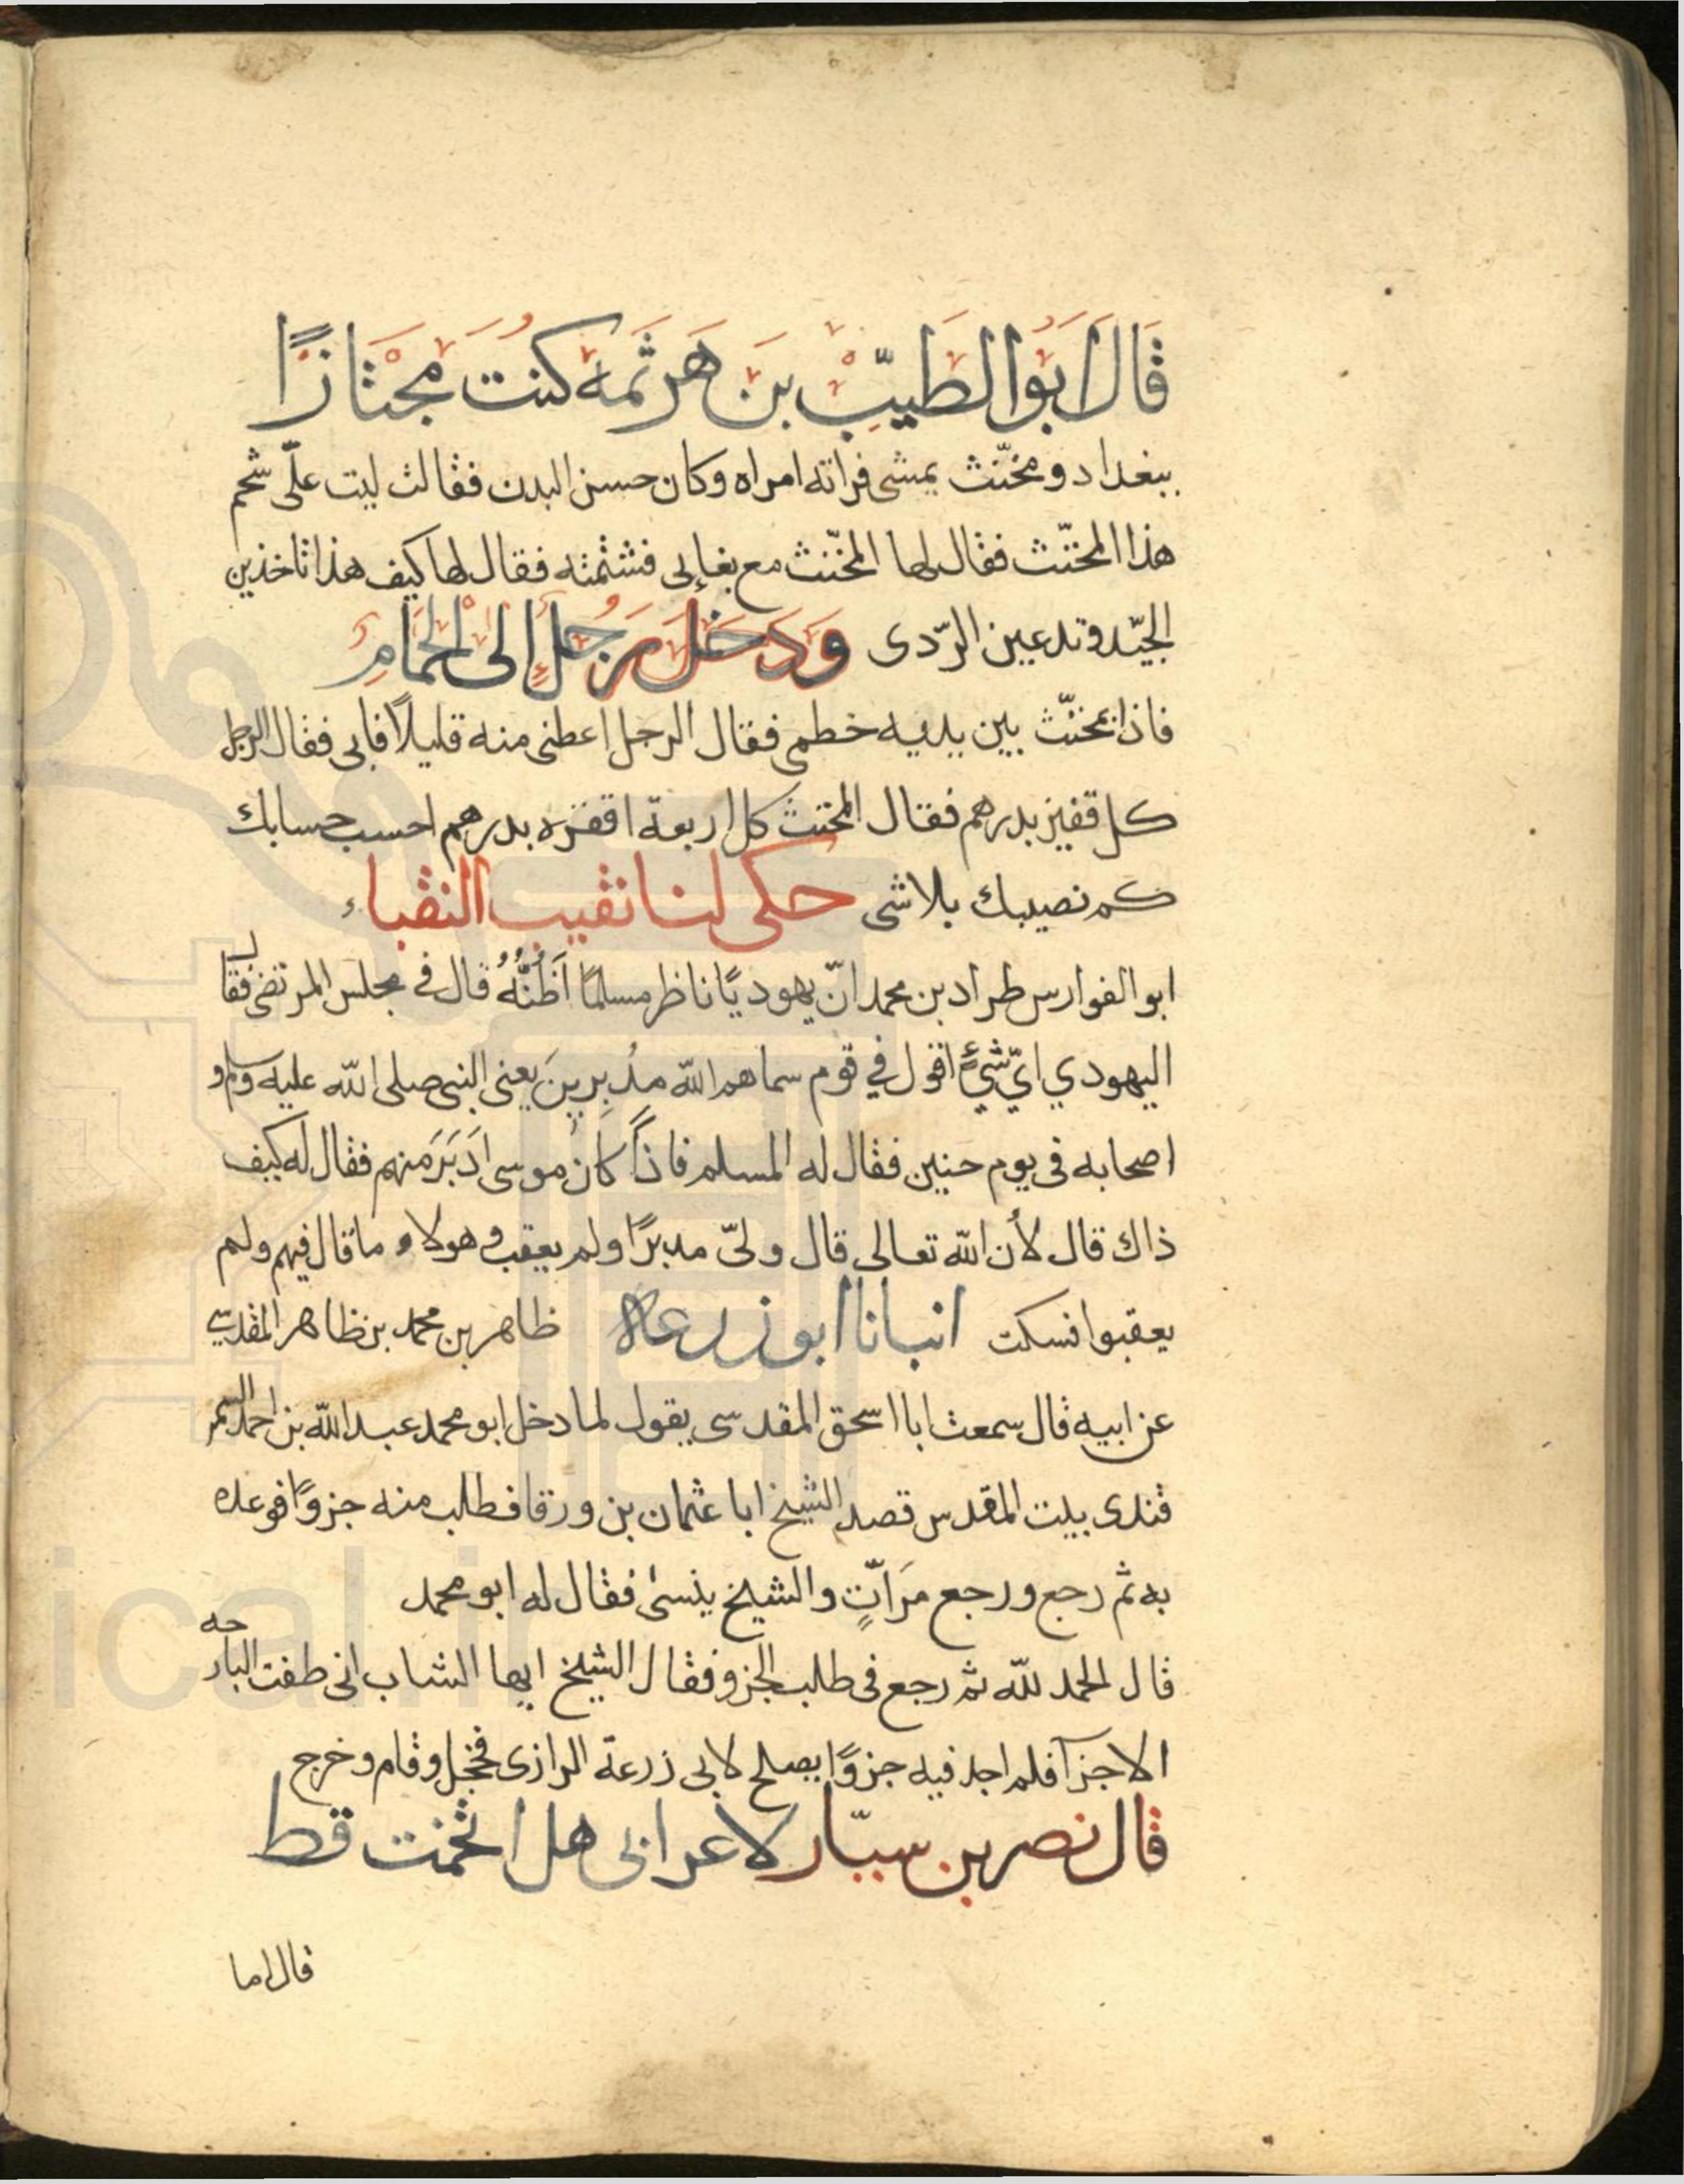 قَالَ اَبُوا الطَيِّبْ بن هَرثَمه كنتُ مَجْتَازًا
ببغداد ومخنّث يمشى فراته امراه وكان حسن البدن فقالت ليت علّى شحم
هذا المخنّث فقال لها المخنّث مع بغاإلى فشتمته فقال لها كيف هذا تاخذين
الجيّد وتدعين الرّدى وَدَخَلَ رَجُلٍ إلى الْحَمَّامِ
فاذا مخنّث بين يديه خطمى فقال الرجل اعطنى منه قليلاً فابى فقال الرجل
كل قفيز بدرهم فقال المخنث كل اربعة اقفزه بدرهم احسب حسابك
كم نصيبك بلاشى حكى لنا نقيب النقباء
ابو الفوارس طراد بن محمد انّ يهوديًا ناظر مسلمًا اَظُنُّهُ قال فى مجلس المرتضى فقال
اليهودي ايّ شيءٍ اقول في قوم سماهم الله مدُبِرِينَ يعنى النبى صلى الله عليه وسلم و
اصحابه فى يوم حنين فقال له المسلم فاذًا كان موسى اَدَبَرَ منهم فقال له كيف
ذاك قال لأن الله تعالى قال ولىّ مدبرًا ولم يعقب وهولاء ما قال فيهم ولم
يعقبوا فسكت انبانا ابو زرعه ظاهر بن محمد بن ظاهر المقدسي
عن ابيه قال سمعت ابا اسحق المقدسى يقول لما دخل ابو محمد عبد الله بن احمد السمر
قندى بيت المقدس قصد الشيخ ابا عثمان بن ورقا فطلب منه جزوًا فوعده
به ثم رجع ورجع مَرَاتٍ والشيخ ينسى فقال له ابو محمد
قال الحمد لله ثم رجع فى طلب الجزو فقال الشيخ ايها الشاب انى طفت البارحه
الاجزآ فلم اجد فيه جزوًا يصلح لابى زرعة الرازى فخجل وقام وخرج
قال نصر بن سيّار لاعرابى هل اتخمت قط
قال اما